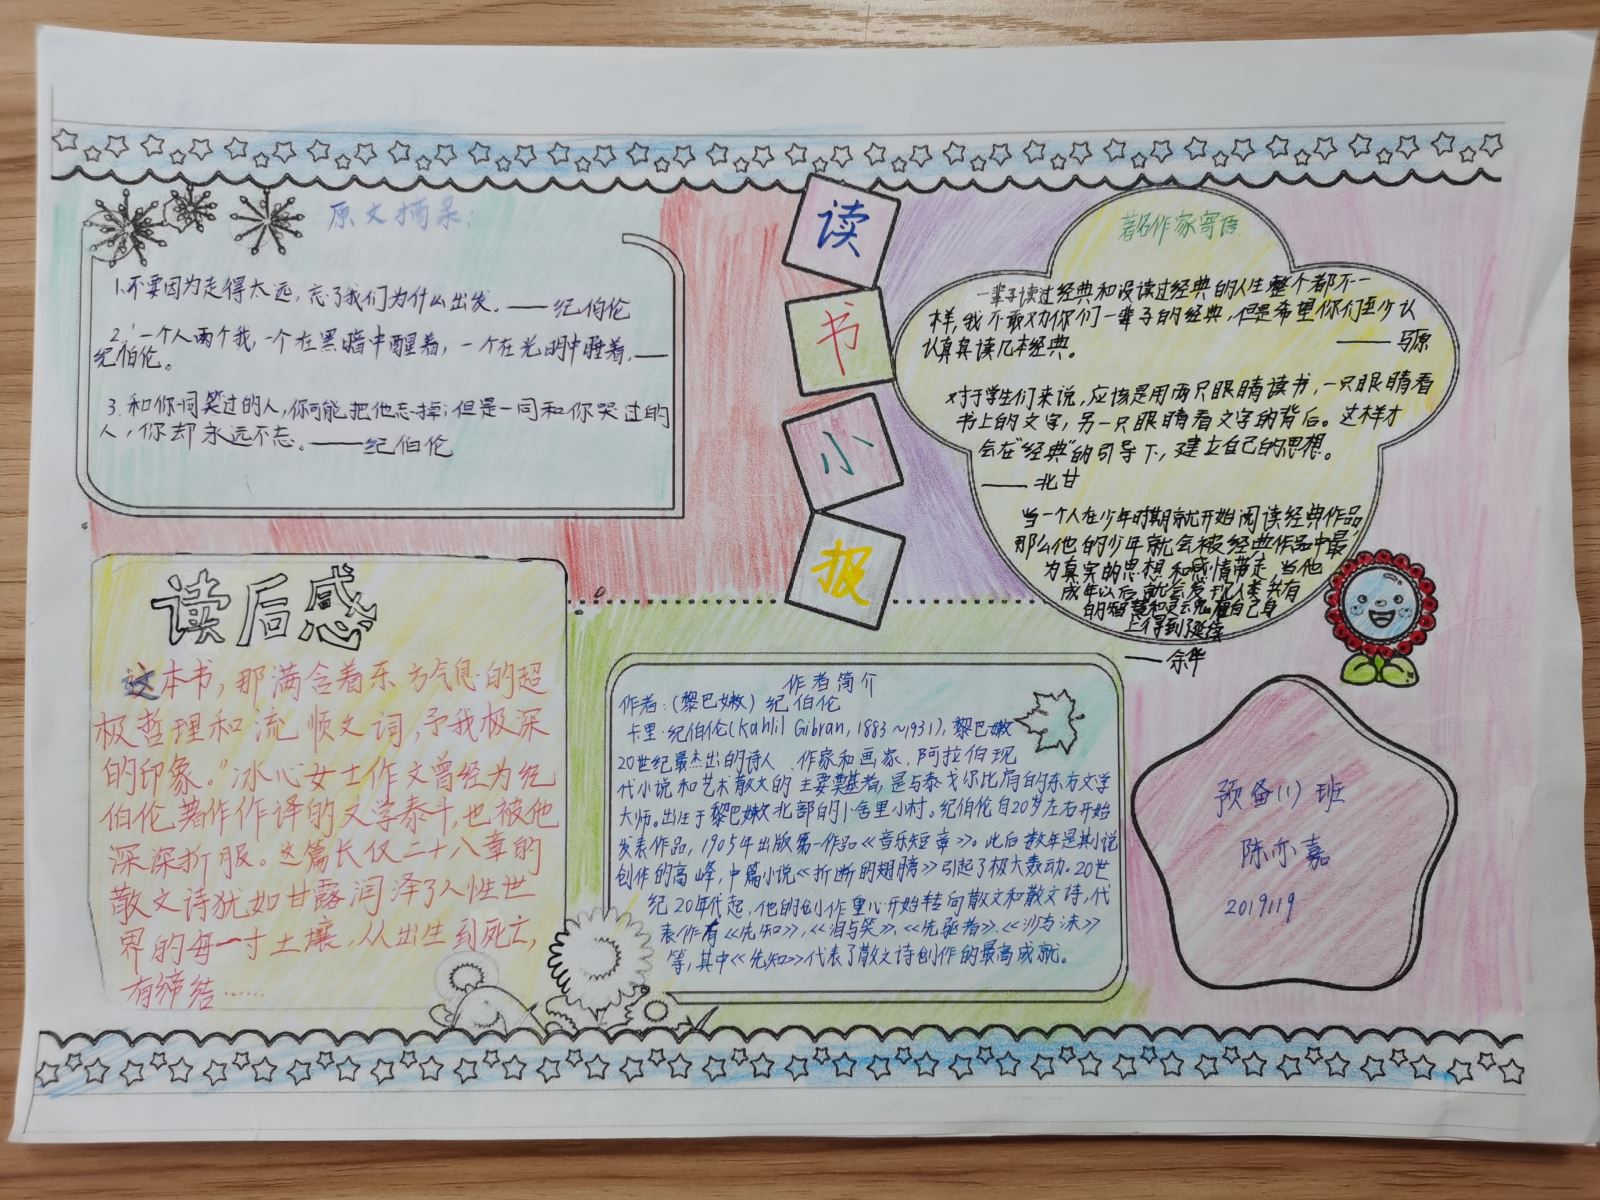 读
书
小
报
原文摘录:
1.不要因为走得太远,忘了我们为什么出发。——纪伯伦
2.一个人两个我,一个在黑暗中醒着,一个在光明中睡着.——
纪伯伦。
3.和你一同笑过的人,你可能把他忘掉;但是一同和你哭过的
人,你却永远不忘。——纪伯伦
著名作家寄语
一辈子读过经典和没读过经典的人生整个都不一
样,我不敢对你们一辈子的经典,但是希望你们至少认
认真真读几本经典。
——马原
对于学生们来说,应该是用两只眼睛读书,一只眼睛看
书上的文字,另一只眼睛看文字的背后。这样才
会在“经典”的引导下,建立自己的思想。
——北甘
当一个人在少年时期就开始阅读经典作品,
那么他的少年就会被经典作品中最
为真实的思想和感情带走,当他
成年以后就会发现人类共有
的智慧和灵魂在自己身
上得到了延续
——余华
读后感
这本书,那满含着东方气息的超
极哲理和流顺文词,予我极深
的印象。”冰心女士作文曾经为纪
伯伦著作作译的文学泰斗,也被他
深深折服。这篇长仅二十八章的
散文诗犹如甘露润泽了人性世
界的每一寸土壤,从出生到死亡,
有缔结……
作者简介
作者:(黎巴嫩)纪伯伦
卡里·纪伯伦(Kahlil Gibran,1883~1931),黎巴嫩
20世纪最杰出的诗人、作家和画家,阿拉伯现
代小说和艺术散文的主要奠基者,是与泰戈尔比肩的东方文学
大师。出生于黎巴嫩北部的小舍里小村。纪伯伦自20岁左右开始
发表作品,1905年出版第一作品《音乐短章》。此后数年是其小说
创作的高峰,中篇小说《折断的翅膀》引起了极大轰动。20世
纪20年代起,他的创作重心开始转向散文和散文诗,代
表作有《先知》,《泪与笑》,《先驱者》,《沙与沫》
等,其中《先知》代表了散文诗创作的最高成就。
预备(1)班
陈亦嘉
2019119